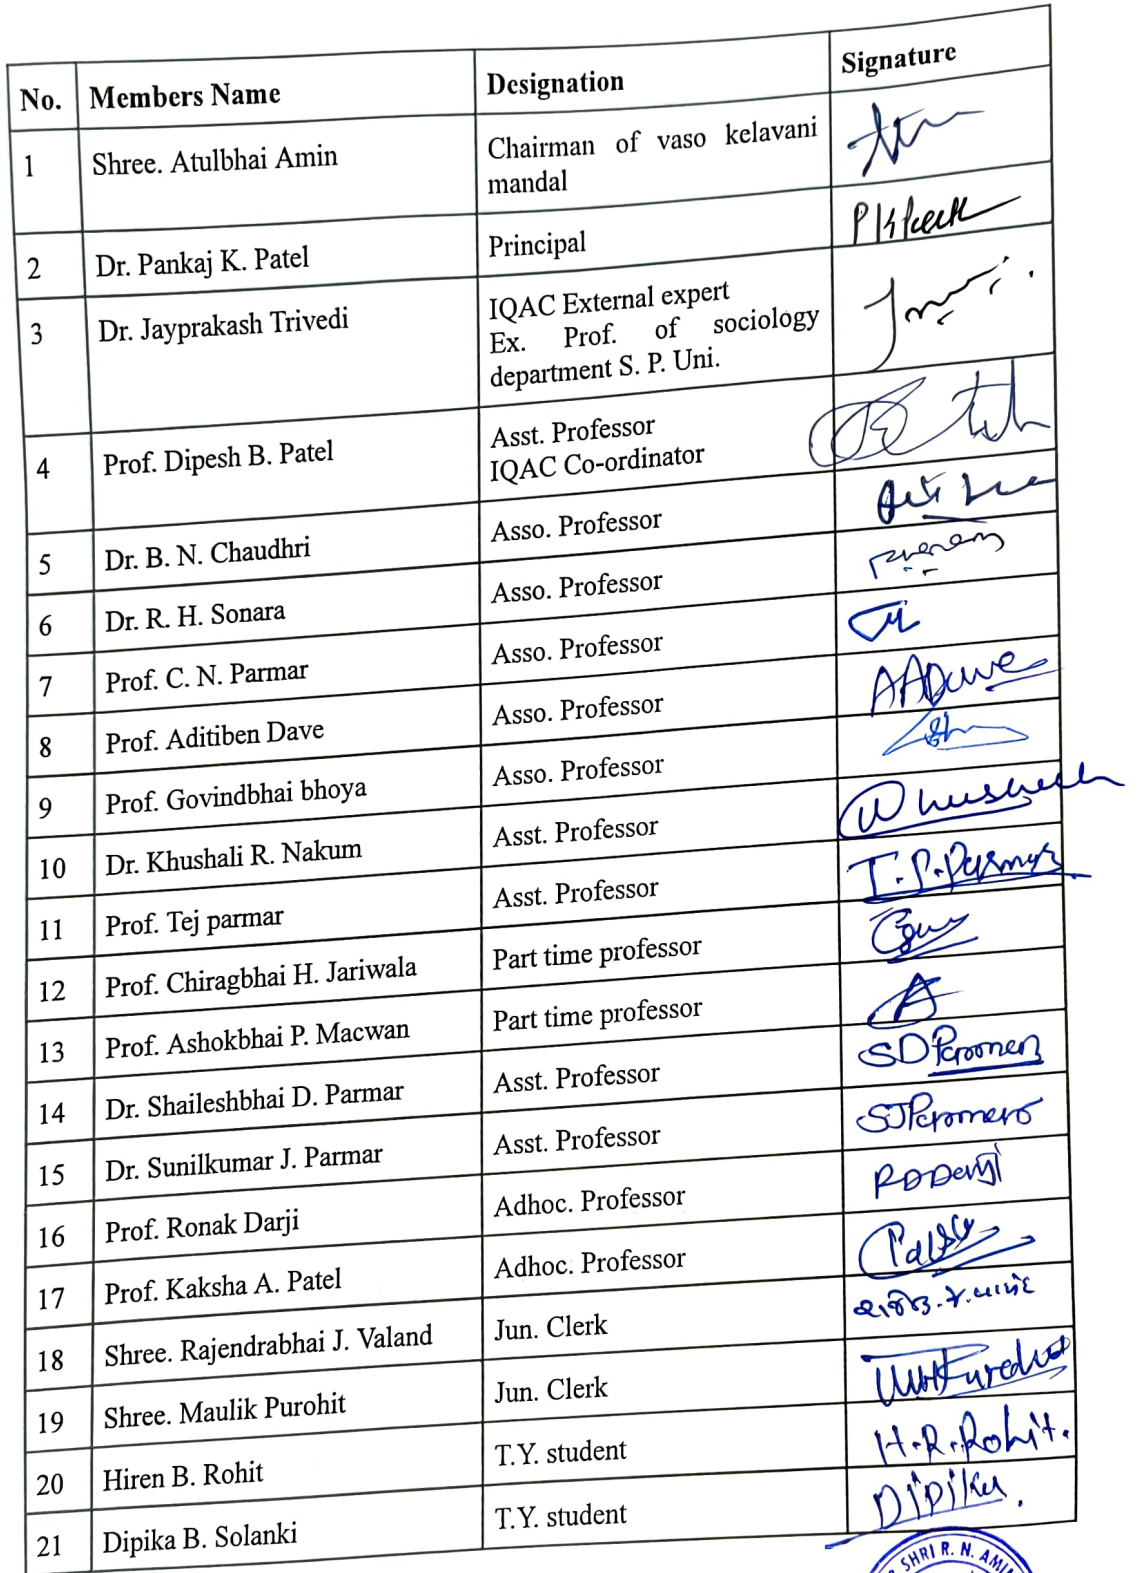 No. Members Name Designation Signature
1 Shree. Atulbhai Amin Chairman of vaso kelavani
mandal
2 Dr. Pankaj K. Patel Principal
3 Dr. Jayprakash Trivedi IQAC External expert
Ex. Prof. of sociology
department S. P. Uni.
4 Prof. Dipesh B. Patel Asst. Professor
IQAC Co-ordinator
5 Dr. B. N. Chaudhri Asso. Professor
6 Dr. R. H. Sonara Asso. Professor
7 Prof. C. N. Parmar Asso. Professor
8 Prof. Aditiben Dave Asso. Professor AADave
9 Prof. Govindbhai bhoya Asso. Professor
10 Dr. Khushali R. Nakum Asst. Professor
11 Prof. Tej parmar Asst. Professor T.P.Parmar
12 Prof. Chiragbhai H. Jariwala Part time professor
13 Prof. Ashokbhai P. Macwan Part time professor
14 Dr. Shaileshbhai D. Parmar Asst. Professor SDParmar
15 Dr. Sunilkumar J. Parmar Asst. Professor SJParmar
16 Prof. Ronak Darji Adhoc. Professor RDDarji
17 Prof. Kaksha A. Patel Adhoc. Professor
18 Shree. Rajendrabhai J. Valand Jun. Clerk
19 Shree. Maulik Purohit Jun. Clerk
20 Hiren B. Rohit T.Y. student H.R.Rohit.
21 Dipika B. Solanki T.Y. student Dipika.
SHRI R. N. AMIN